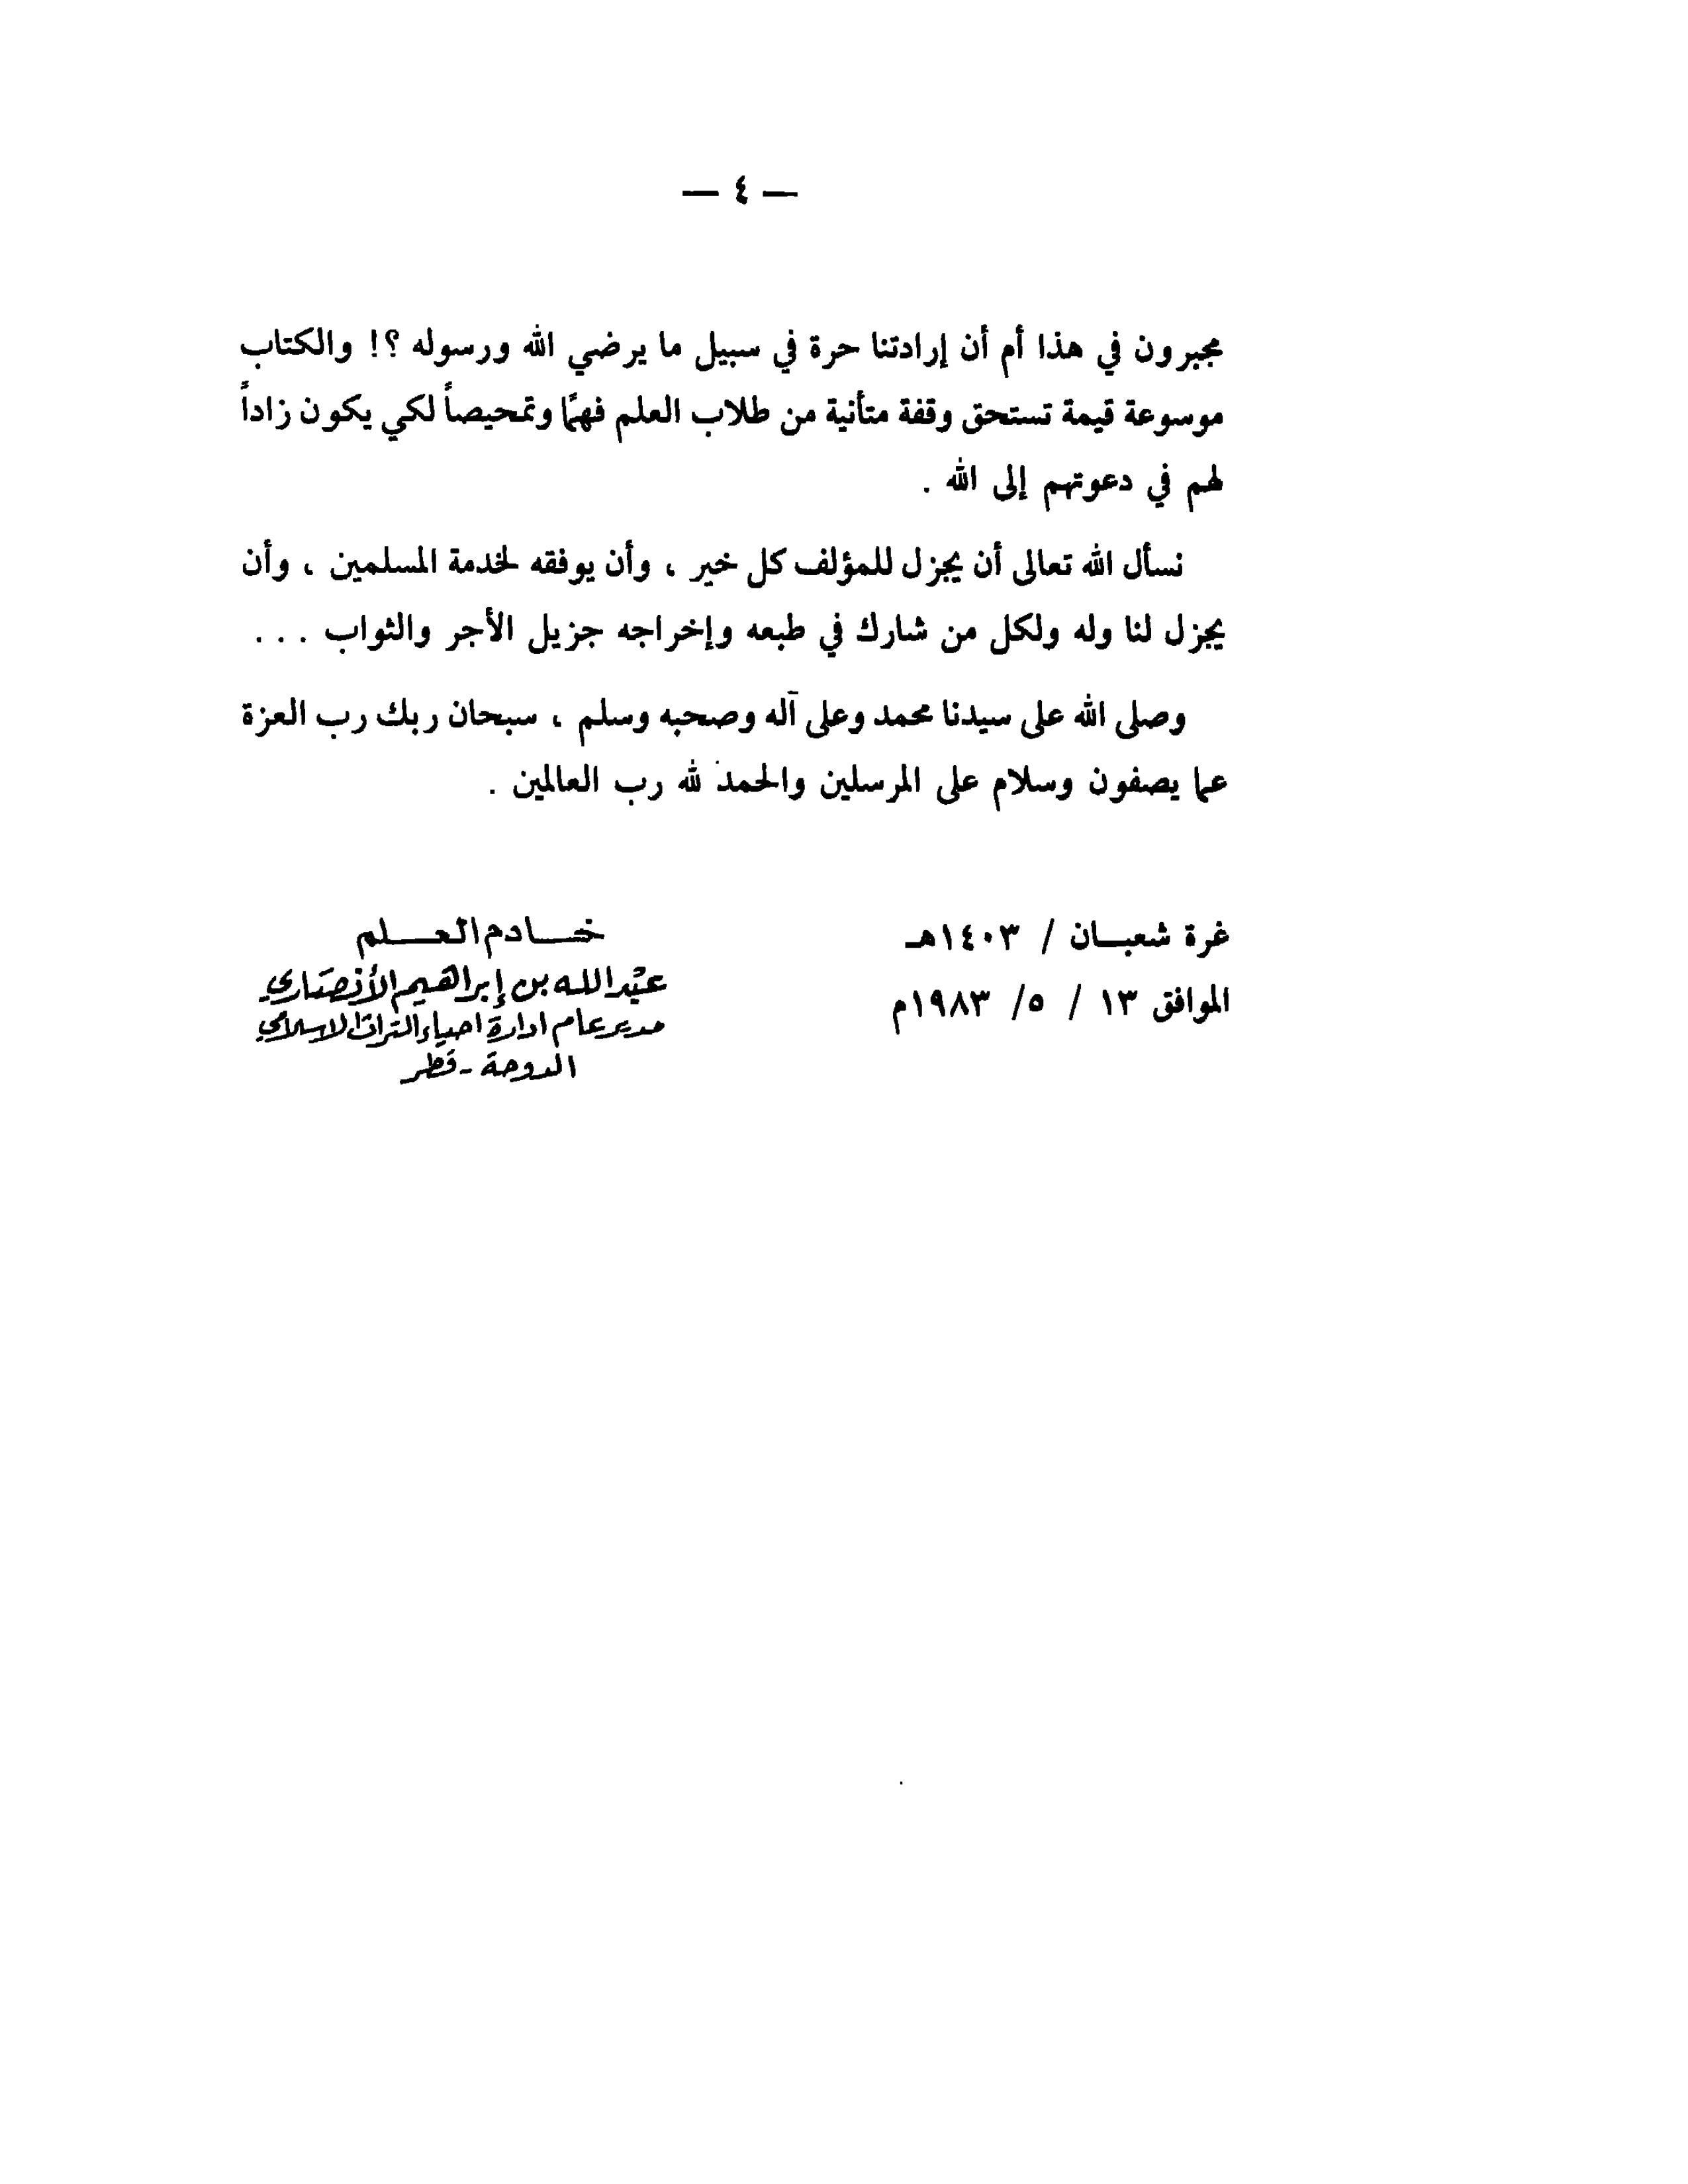 — ٤ —
مجبرون في هذا أم أن إرادتنا حرة في سبيل ما يرضي الله ورسوله ؟! والكتاب
موسوعة قيمة تستحق وقفة متأنية من طلاب العلم فهمًا وتمحيصاً لكي يكون زاداً
لهم في دعوتهم إلى الله .
نسأل الله تعالى أن يجزل للمؤلف كل خير ، وأن يوفقه لخدمة المسلمين ، وأن
يجزل لنا وله ولكل من شارك في طبعه وإخراجه جزيل الأجر والثواب . . .
وصلى الله على سيدنا محمد وعلى آله وصحبه وسلم ، سبحان ربك رب العزة
عما يصفون وسلام على المرسلين والحمد لله رب العالمين .
غرة شعبـــان / ١٤٠٣هـ
الموافق ١٣ / ٥/ ١٩٨٣م
خـــادم العـــلم
عبدالله بن إبراهيم الأنصاري
مدير عام ادارة احياء التراث الاسلامي
الدوحة - قطر